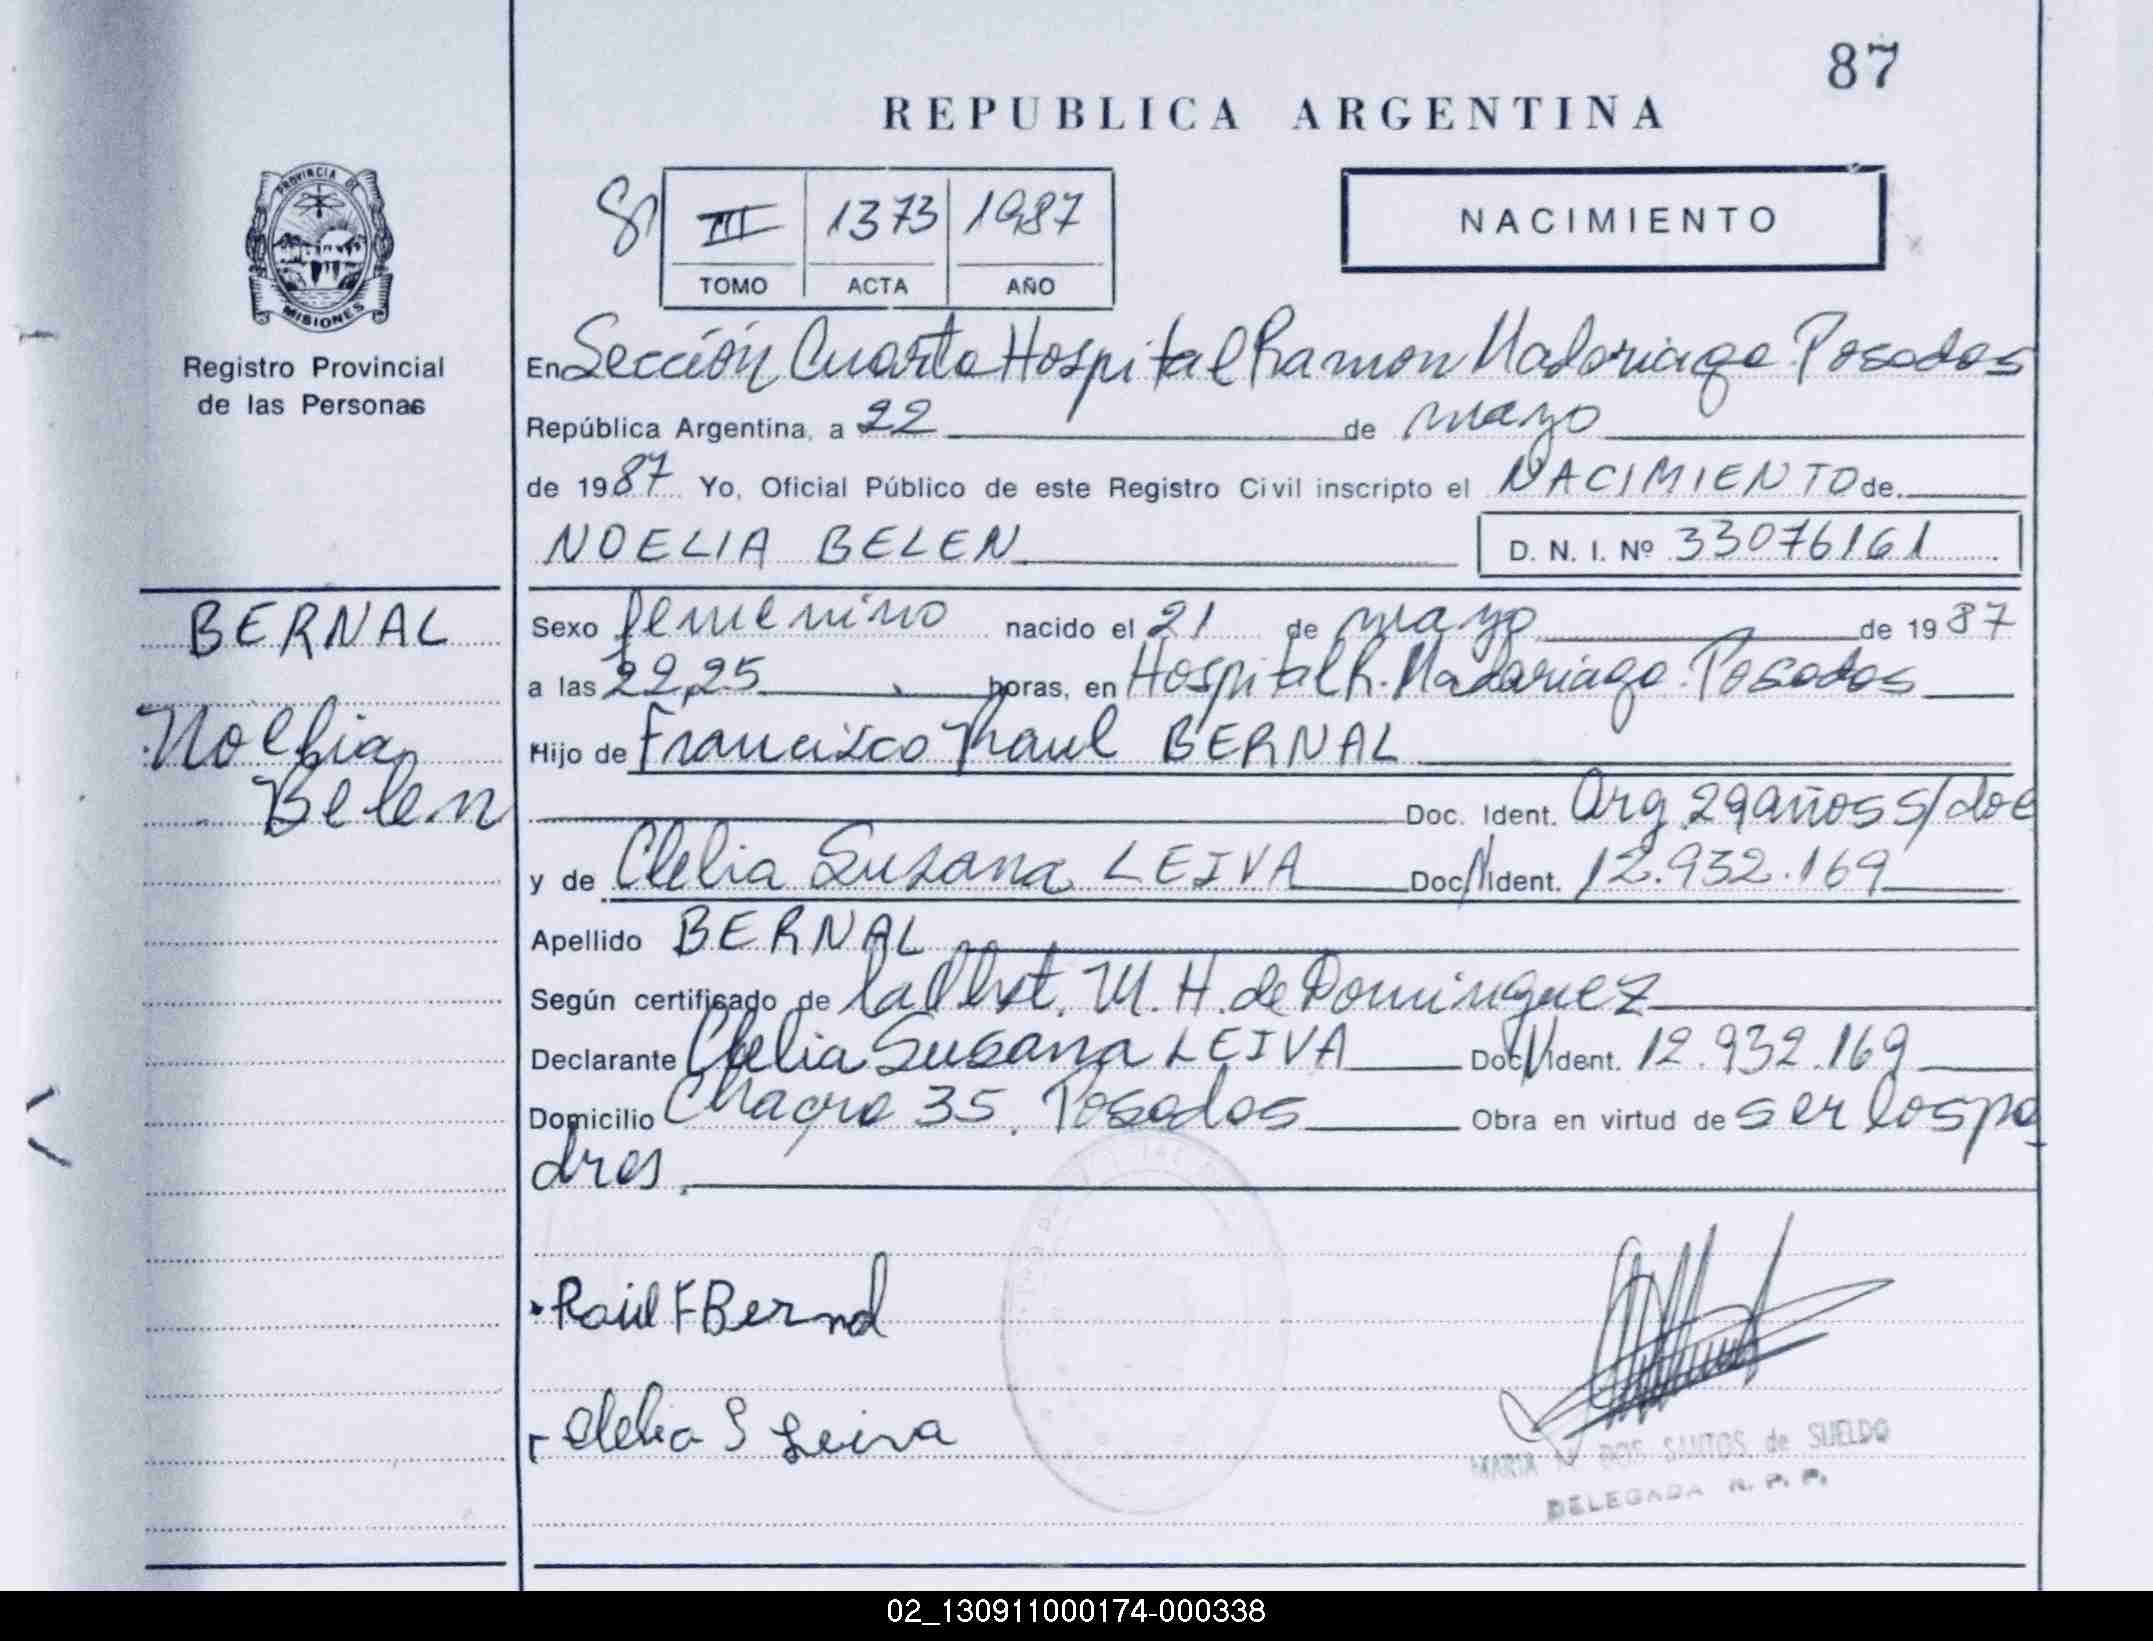 87
REPUBLICA ARGENTINA
PROVINCIA DE
MISIONES
III 1373 1987
TOMO ACTA AÑO
NACIMIENTO
Registro Provincial
de las Personas
En Sección Cuarta Hospital Ramon Madariaga Posadas
República Argentina, a 22 de mayo
de 1987 Yo, Oficial Público de este Registro Civil inscripto el NACIMIENTO de
NOELIA BELEN D. N. I. Nº 33076161
BERNAL
Noelia
Belen
Sexo femenino nacido el 21 de mayo de 1987
a las 22,25 horas, en Hospital R. Madariaga. Posadas
Hijo de Francisco Raul BERNAL
Doc. Ident. Arg. 29 años s/doc
y de Clelia Susana LEIVA Doc. Ident. 12.932.169
Apellido BERNAL
Según certificado de la Obst. M. H. de Dominguez
Declarante Clelia Susana LEIVA Doc. Ident. 12.932.169
Domicilio Chacra 35. Posadas Obra en virtud de ser los pa
dres.
Raúl F Bernal
Clelia S Leiva
MARIA N. DOS SANTOS de SUELDO
DELEGADA R. P. P.
02_130911000174-000338